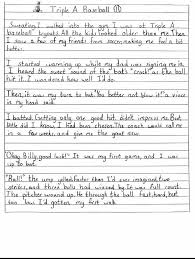 Triple A Baseball
Sweating I walked into the gym I was at Triple A
baseball tryouts. All the kids looked older than me. Then
I saw a few of my friends from soccer making me feel a bit
better.
I started warming up while my dad was signing me in.
I heard the sweet sound of the bat's "crack" as the ball
hit it. I wondered how well I'd do.
Then, it was my turn to bat. "You better not blow it" a voice
in my head said.
I batted. Getting only one good hit didn't impress me. But
little did I know, I had been chosen. The coach would call me
in a few weeks and give me the great news.
"Okay Billy, good luck!" It was my first game, and I was
up to bat.
"Ball!" the ump yelled faster than I'd ever imagined. Two
strikes and three balls had whizzed by. It was full count.
The pitcher wound up. He threw the ball fast, hard, but
too low. I'd gotten my first walk.